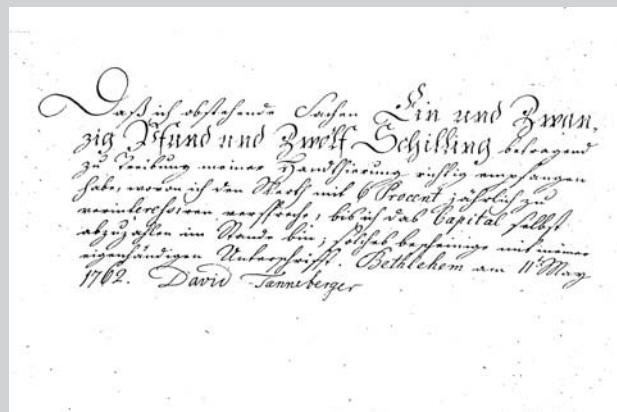 Daß ich obstehende Sachen Ein und Zwan-
zig Pfund und Zwölf Schilling betragend
zu Treibung meiner Handthierung richtig empfangen
habe, wovon ich den Werth mit 6 Procent jährlich zu
verinteressiren verspreche, bis ich das Capital selbst
abzuzahlen im Stande bin; solches bescheinige mit meiner
eigenhändigen Unterschrifft. Bethlehem am 11t. May
1762. David Tanneberger